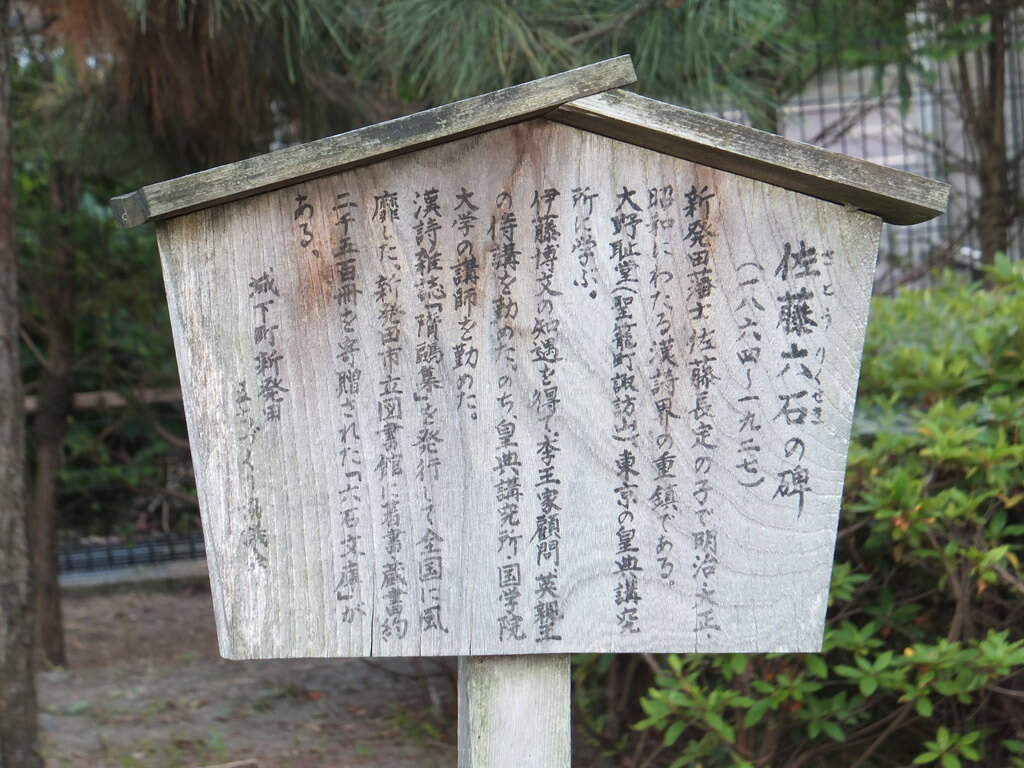 佐藤六石の碑
さとうりくせき
(一八六四~一九二七)
新発田藩士佐藤長定の子で明治・大正・
昭和にわたる漢詩界の重鎮である。
大野耻堂(聖籠町諏訪山)、東京の皇典講究
所に学ぶ。
伊藤博文の知遇を得て、李王家顧問、英親王
の侍講を勤めた。のち皇典講究所・国学院
大学の講師を勤めた。
漢詩雑誌「随鷗集」を発行して全国に風
靡した。新発田市立図書館に著書・蔵書約
二千五百冊を寄贈された「六石文庫」が
ある。
城下町新発田
まちづくり